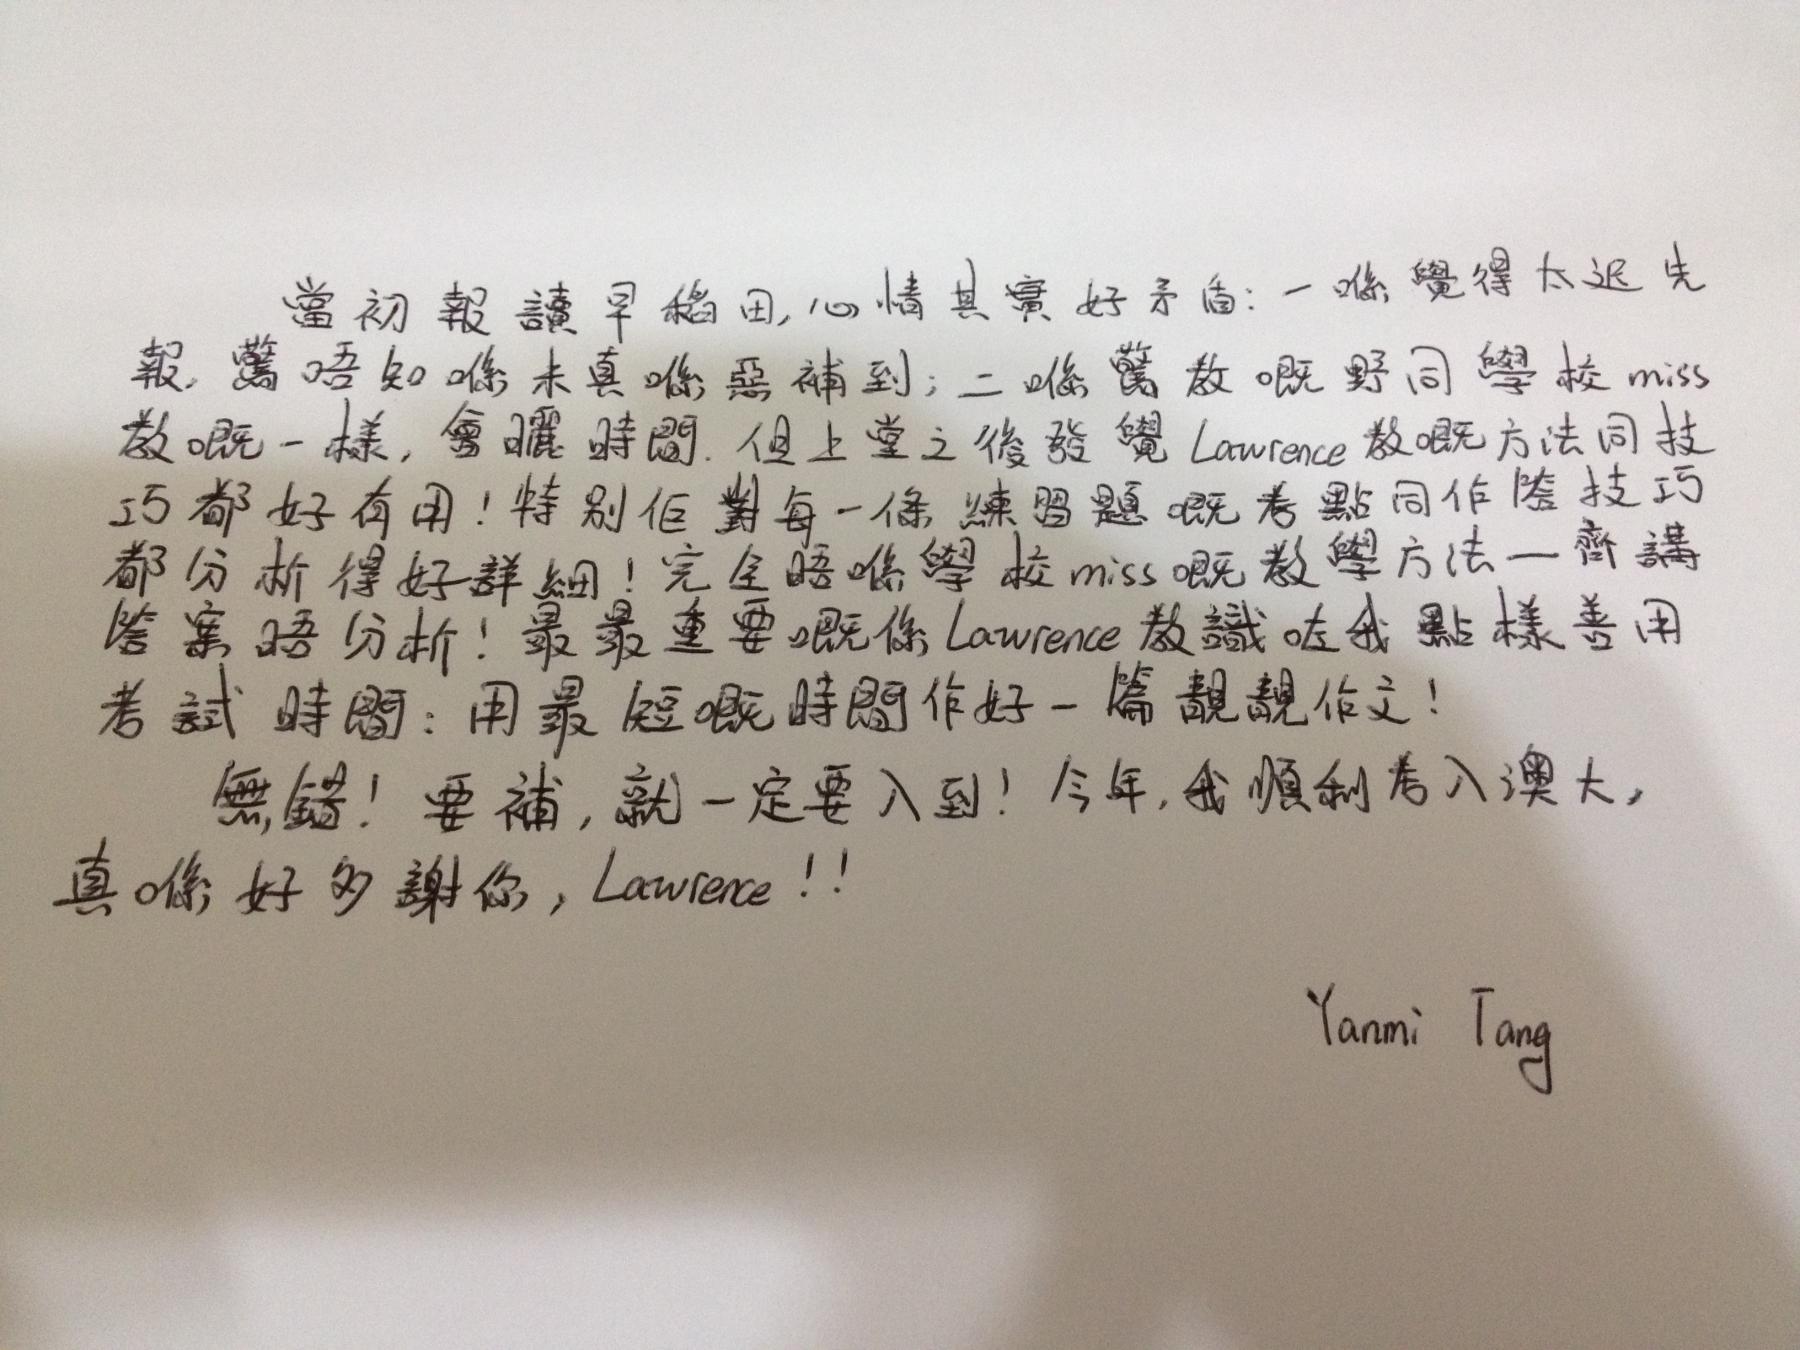 當初報讀早稻田，心情其實好矛盾：一喺覺得太迟先
報，驚唔知喺未真喺惡補到；二喺驚教嘅野同學校miss
教嘅一樣，會曬時間．但上堂之後發覺Lawrence教嘅方法同技
巧都好有用！特別佢對每一條練習題嘅考點同作答技巧
都分析得好詳細！完全唔喺學校miss嘅教學方法一齊講
答案唔分析！最最重要嘅係Lawrence教識咗我點樣善用
考試時間：用最短嘅時間作好一篇靚靚作文！
無錯！要補，就一定要入到！今年，我順利考入澳大，
真喺好多謝你，Lawrence！！
Yanmi Tang